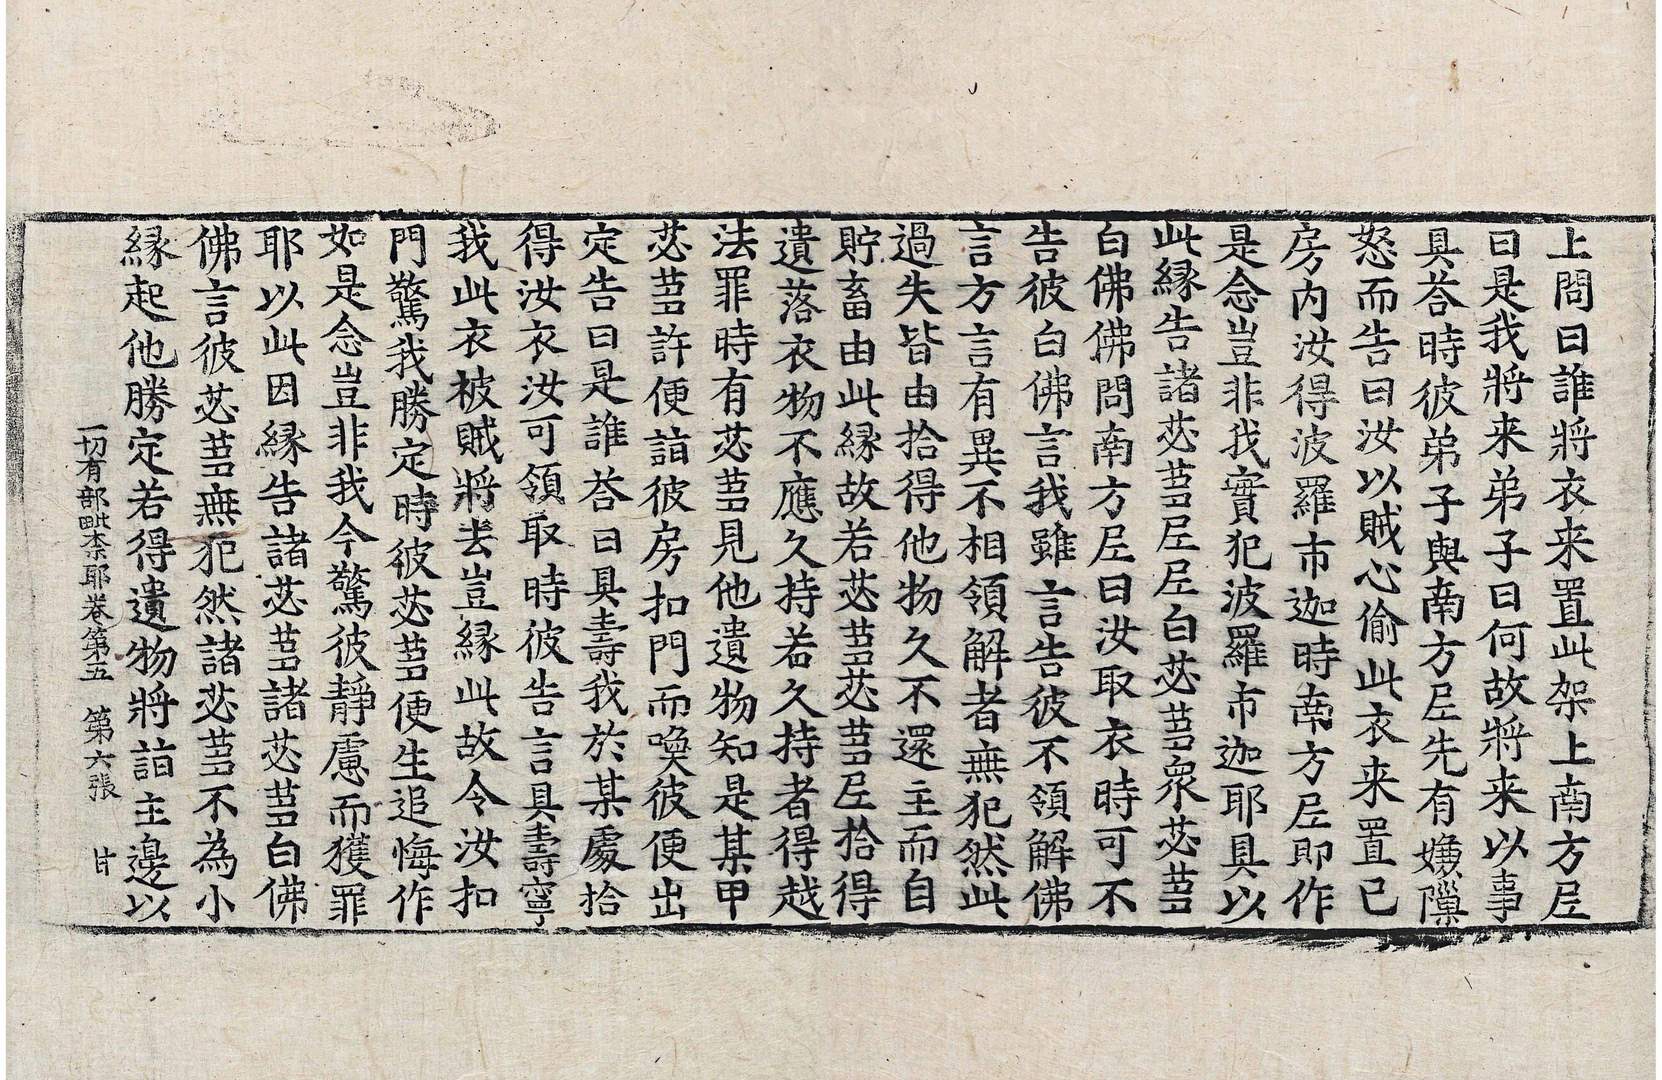 上問曰誰將衣来置此架上南方尼
曰是我將来弟子曰何故將来以事
具荅時彼弟子與南方尼先有嫌隟
怒而告曰汝以賊心偷此衣来置已
房内汝得波羅市迦時南方尼即作
是念豈非我實犯波羅市迦耶具以
此縁告諸苾蒭尼尼白苾蒭衆苾蒭
白佛佛問南方尼曰汝取衣時可不
告彼白佛言我雖言告彼不領解佛
言方言有異不相領解者無犯然此
過失皆由拾得他物久不還主而自
貯畜由此縁故若苾蒭苾蒭尼拾得
遺落衣物不應久持若久持者得越
法罪時有苾蒭見他遺物知是某甲
苾蒭許便詣彼房扣門而喚彼便出
定告曰是誰荅曰具壽我於某處拾
得汝衣汝可領取時彼告言具壽寧
我此衣被賊將去豈縁此故令汝扣
門驚我勝定時彼苾蒭便生追悔作
如是念豈非我今驚彼靜慮而獲罪
耶以此因縁告諸苾蒭諸苾蒭白佛
佛言彼苾蒭無犯然諸苾蒭不為小
縁起他勝定若得遺物將詣主邊以
一切有部毗柰耶卷第五 第六張 甘